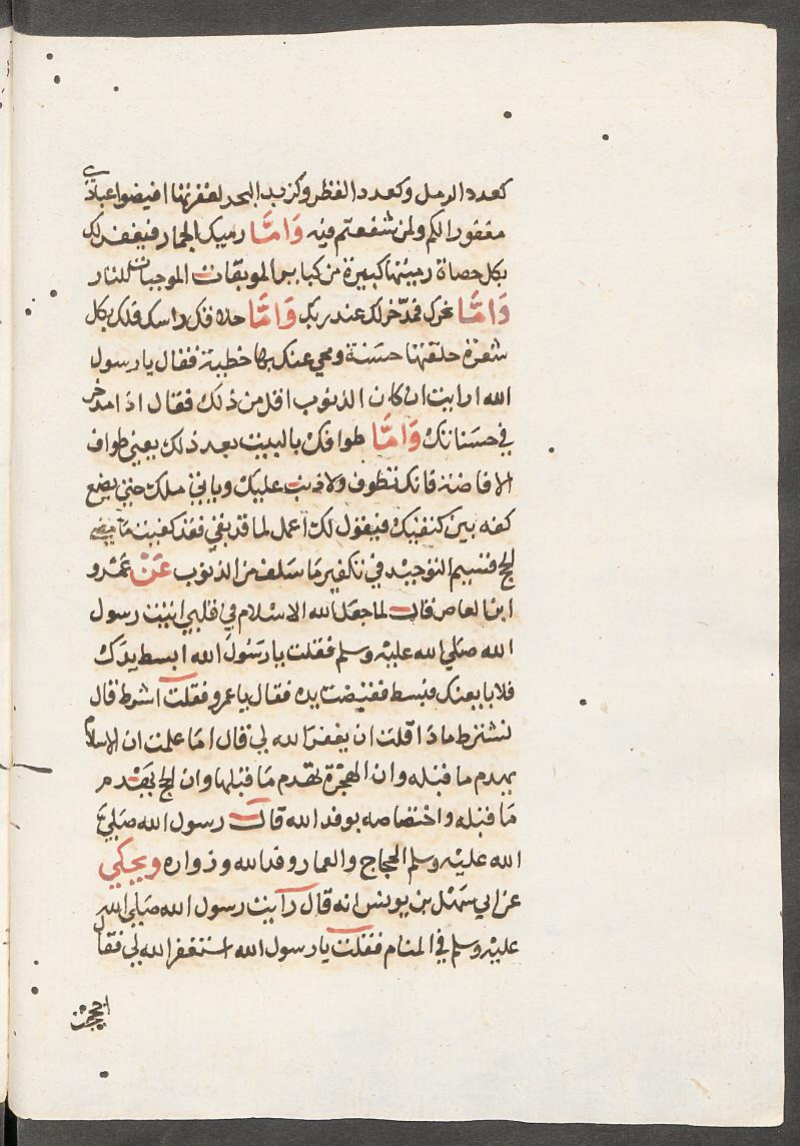 كعدد الرمل وكعدد القطر وكزبد البحر لغفرتها افيضوا عبادي
مغفورا لكم ولمن شفعتم فيه وَامَّا رميك الجمار فيغفر لك
بكل حصاة رميتها كبيرة من كباير الموبقات الموجبات للنار
وَامَّا نحرك فمدّخر لك عند ربك وَامَّا حلاقك راسك فلك بكل
شعرة حلقتها حسنة ومحي عنك بها خطية فقال يا رسول
الله ارايت ان كان الذنوب اقل من ذلك فقال اذا مدخر
في حسناتك وَامَّا طوافك بالبيت بعد ذلك يعني طواف
الافاضة فانك تطوف ولا ذنب عليك وياتي ملك حتي يضع
كفه بين كتفيك فيقول لك اعمل لما قد بقي فقد كفيت ما مضي
الحج قسيم التوحيد في تكفير ما سلف من الذنوب عَنْ عَمْرو
ابن العاص قال لما جعل الله الاسلام في قلبي اتيت رسول
الله صَلي الله عليه وسلم فقلت يا رسُول الله ابسط يدك
فلابايعنك فبسط فقبضت يده فقال يا عمرو فقلت اشترط قال
تشترط ماذا قلت ان يغفر الله لي قال اما علمت ان الاسلام
يهدم ما قبله وان الهجرة تهدم مَا قبلها وان الحج يهدم
مَا قبله واختصاصه بوفد الله قال رسول الله صَلي
الله عليه وسلم الحجاج والعمار وفد الله وزواره ويحكي
عن ابي سَهْل بن يونس انه قال رايت رسول الله صَلي الله
عليه وسلم في المنام فقلت يا رسول الله استغفر الله لي فقال
احججت